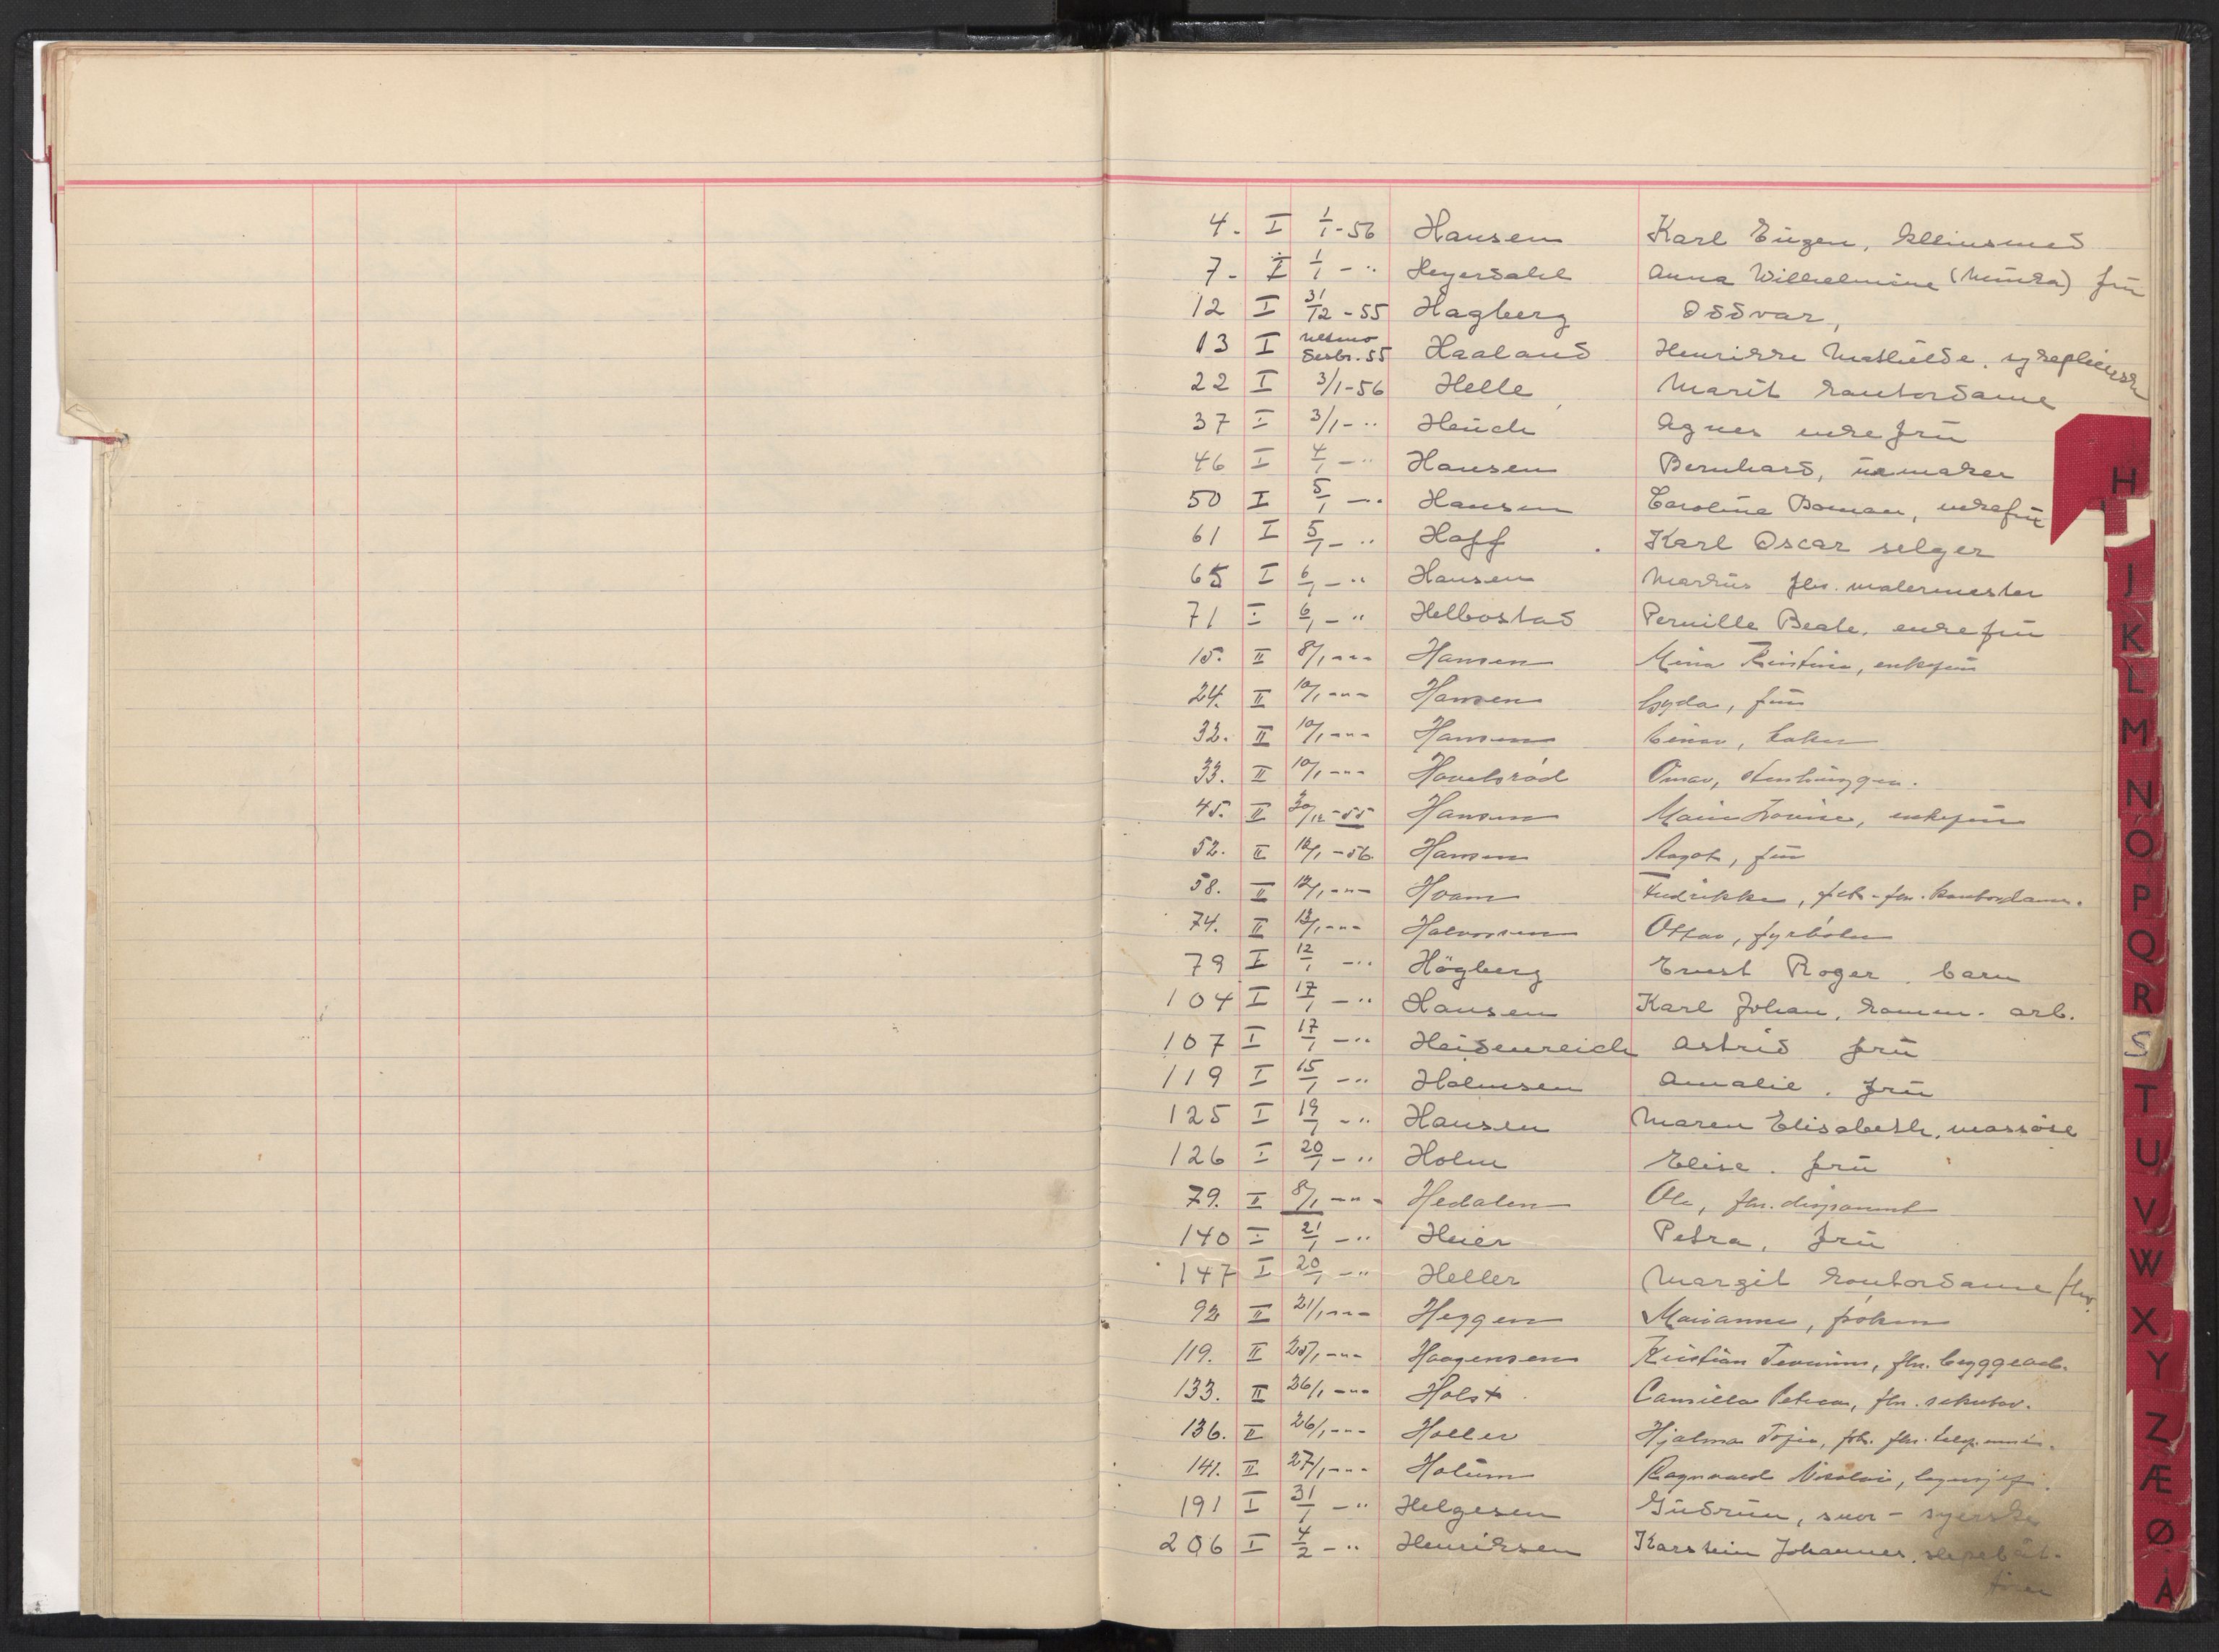 4. I 1/1-56 Hansen Karl Eugen, kleinsmed
7- I 1/1 - " Heyerdahl Anna Wilhelmine (Minka) frü
12 I 31/12-55 Hagberg Oddvar,
13 I ultimo desbr. 55 Haaland Henrikke Mathilde. sykepleierske
22 I 3/1-56 Helle Marit kontordame
37 I 3/1- " Heuch Agnes enkefrü
46 I 4/1 - " Hansen Bernhard, ürmaker
50 I 5/1 - " Hansen Caroline Boman, enkefrü
61 I 5/1 - " Hoff Karl Oscar selger
65 I 6/1 - " Hansen Markus fhv. malermester
71 I 6/1 - " Helbostad Pernille Beate. enkefrü
15. II 8/1 -"- Hansen Mina Kristine, enkefrü
24. II 10/1 -"- Hansen Gyda, frü
32. II 10/1 -"- Hansen Einar,
33. II 10/1 -"- Havelsröd stenhügger.
45. II 30/12-55 Hansen Louise, enkefrü
52. II 12/1-56 Hansen Aagot, frü
58. II 12/1 -"- Hvam Fredrikke, fhv. kontordame.
74. II 13/1 -"- Halvorsen Ottar, fyrböter
79 I 12/1 - " Högberg Ernst Roger. barn
104 I 17/1 - " Hansen Karl Johan, komm. arb.
107 I 17/1 - " Heidenreich Astrid frü
119 I 15/1 - " Holmsen Amalie. frü
125 I 19/1 - " Hansen Maren Elisabeth, massöse
126 I 20/1 - " Holm Elise. frü
79. II 8/1 -"- Hedalen Ole, fhv. disponent
140 I 21/1 - " Heier Petra, frü
147 I 20/1 - " Heller Margit kontordame fhv.
92 II 21/1 -"- Heggen Marianne, fröken
119. II 25/1 -"- Haagensen Kristian fhv. byggearb.
133. II 26/1 -"- Holst Camilla Petrea, fhv.
136. II 26/1 -"- Holler Hjalmar fhv.
141. II 27/1 -"- Holum Ragnvald Nicolai, lagersjef.
191 I 31/1 - " Helgesen Güdrün, snor- syerske
206 I 4/2 - " Henriksen Karstein Johannes. slepebåt-
förer
H
J
K
L
M
N
O
P
Q
R
S
T
U
V
W
X
Y
Z
Æ
Ø
Å